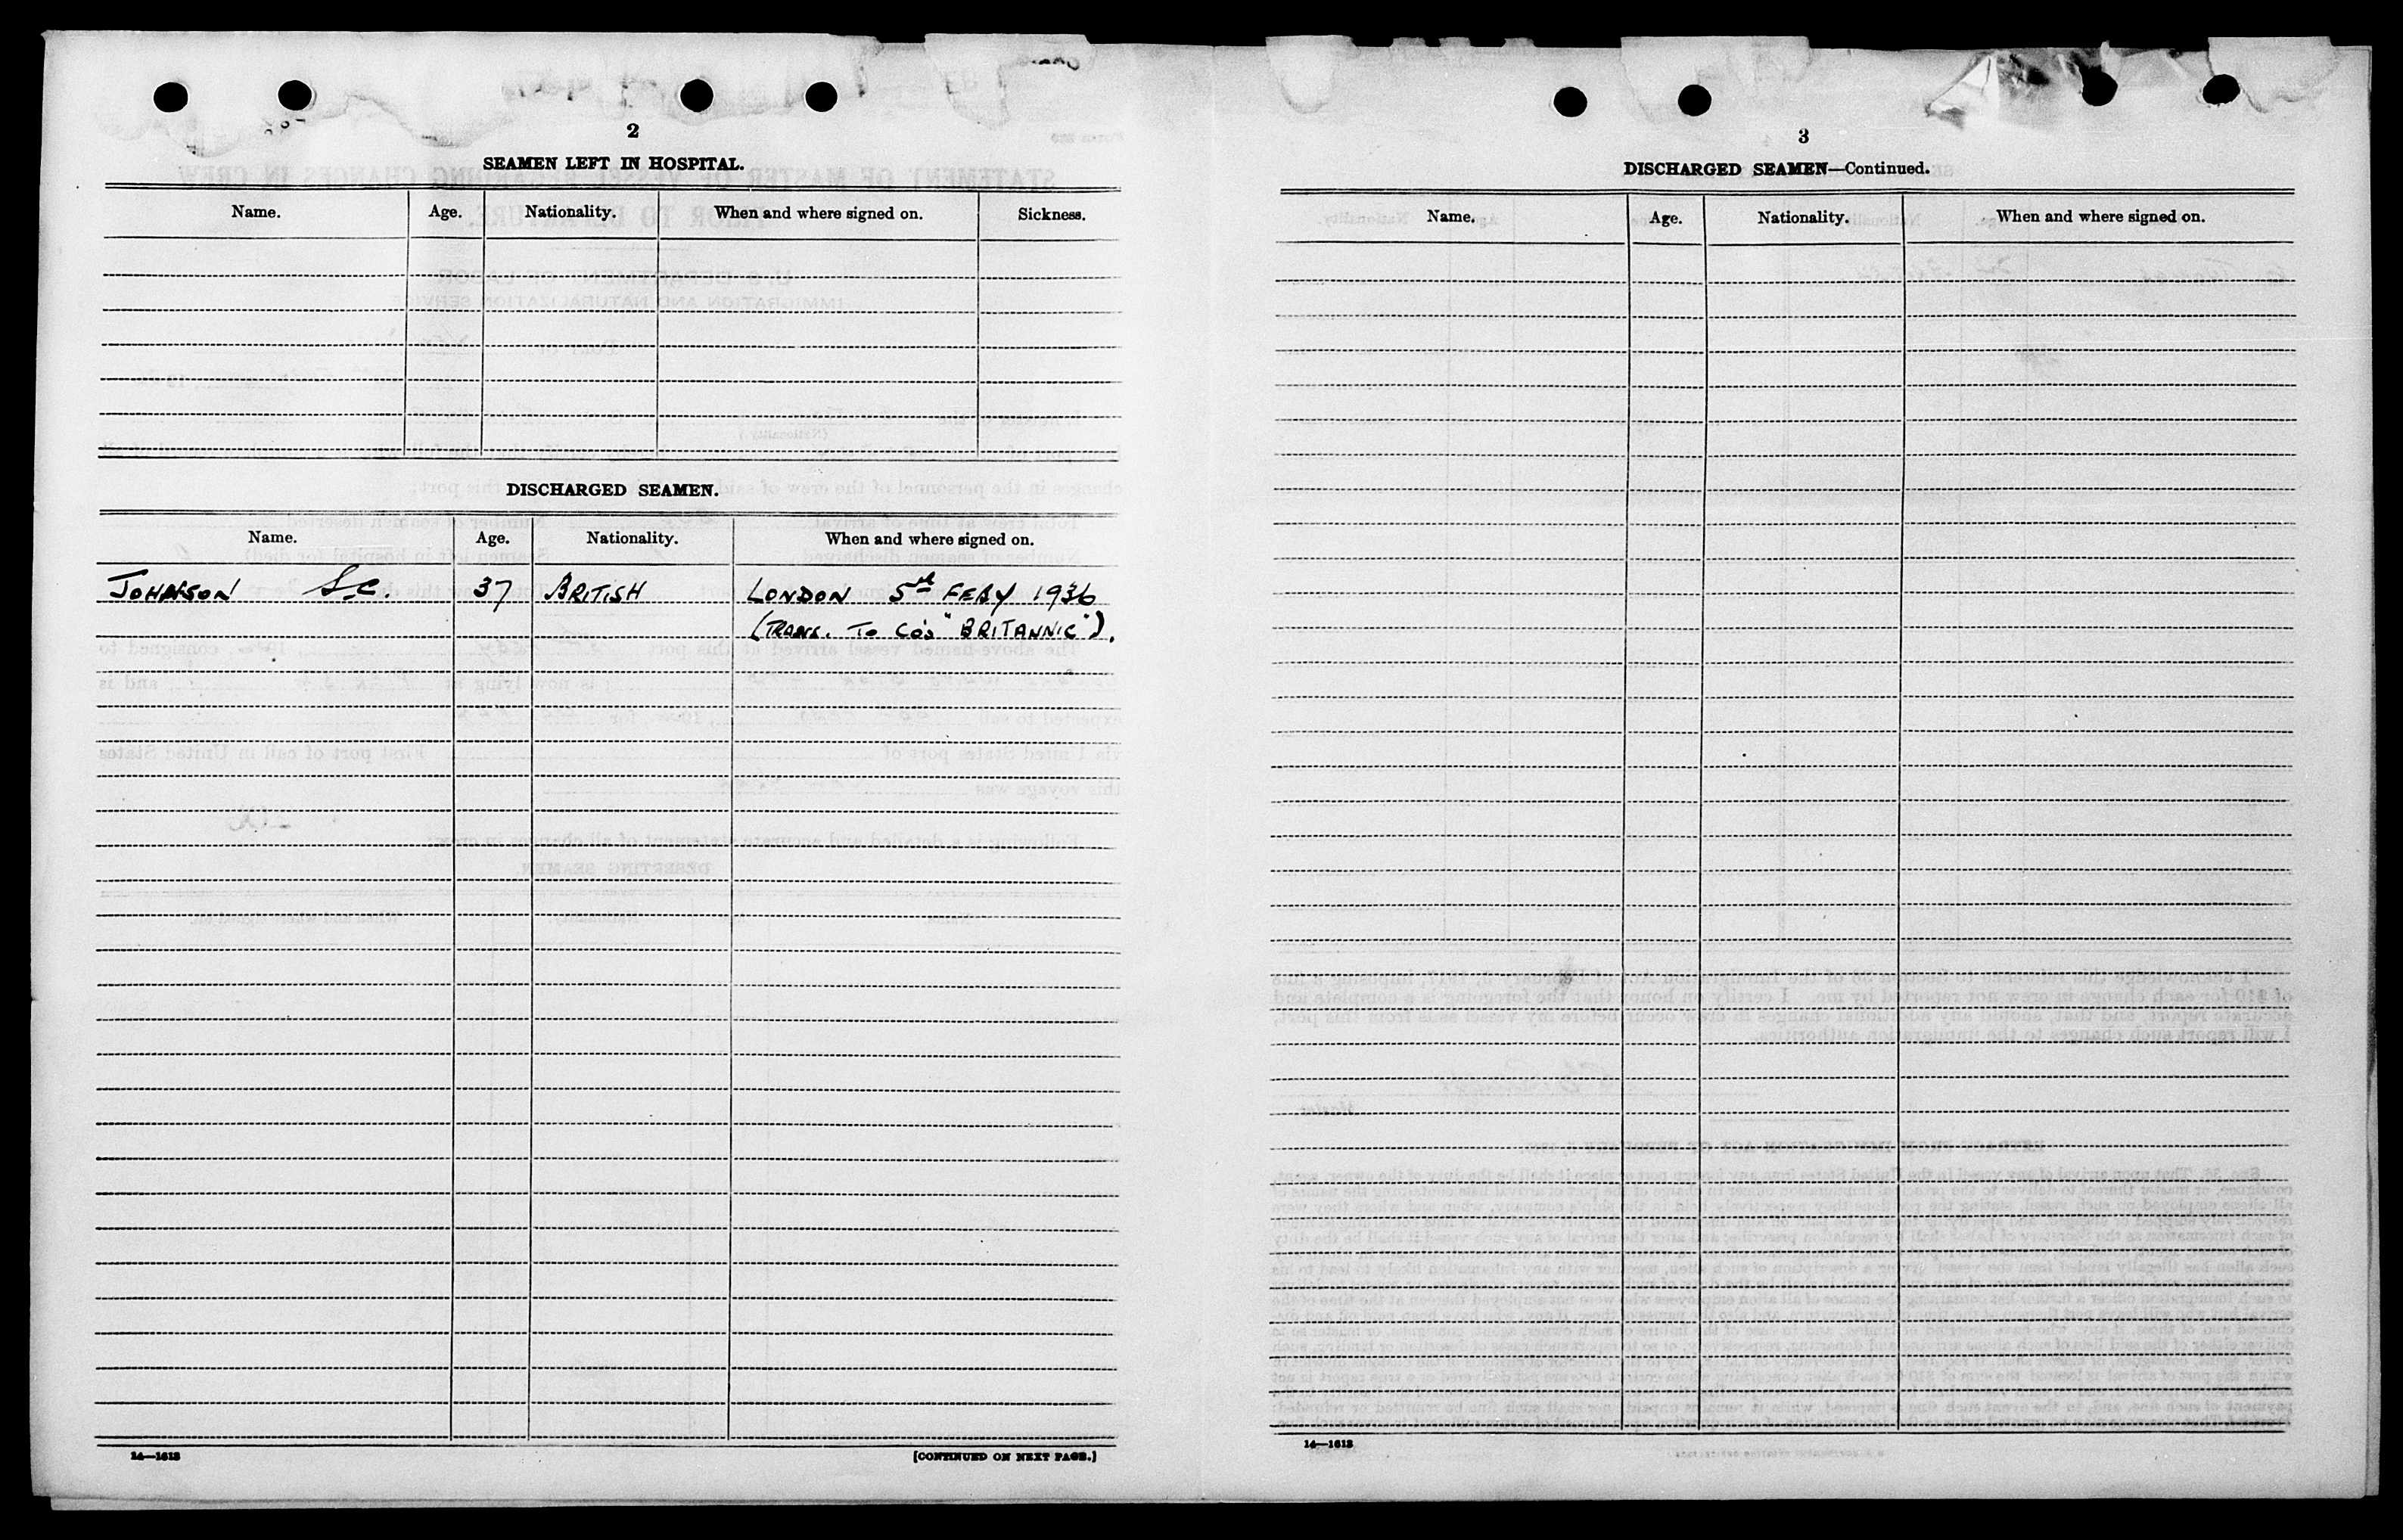 2
SEAMEN LEFT IN HOSPITAL.
Name. Age. Nationality. When and where signed on. Sickness.
DISCHARGED SEAMEN.
Name. Age. Nationality. When and where signed on.
JOHNSON S.C. 37 BRITISH LONDON 5th FEBY 1936
(TRANS. To Co's "BRITANNIC").
14—1613
[CONTINUED ON NEXT PAGE.]
3
DISCHARGED SEAMEN—Continued.
Name. Age. Nationality. When and where signed on.
14—1613